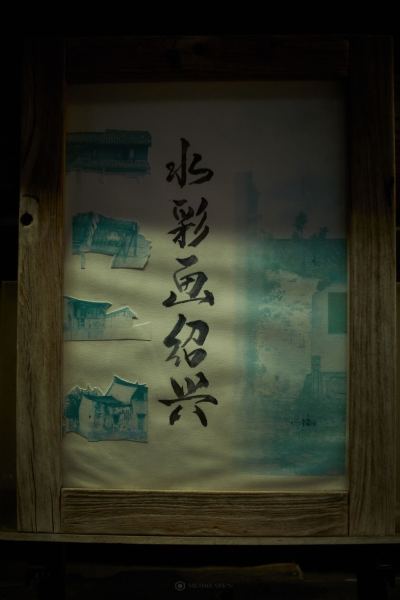 水彩画绍兴